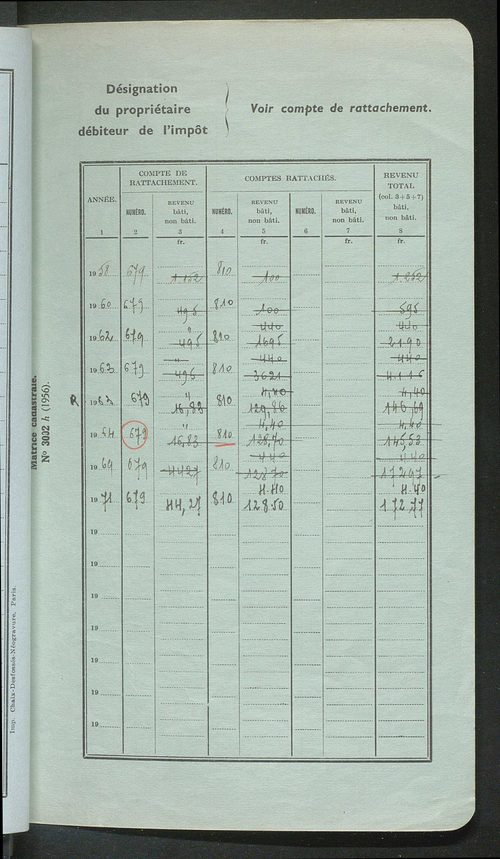 Désignation
du propriétaire
débiteur de l'impôt
Voir compte de rattachement.
ANNÉE.
COMPTE DE RATTACHEMENT.
COMPTES RATTACHÉS.
REVENU TOTAL (col. 3+5+7) bâti, non bâti.
NUMÉRO. REVENU bâti, non bâti. NUMÉRO. REVENU bâti, non bâti. NUMÉRO. REVENU bâti, non bâti.
1 2 3 4 5 6 7 8
fr. fr. fr. fr.
1958 679 1.152 810 100 1.252
1960 679 495 810 100 595
" 440 440
1962 679 495 810 1695 2190
" 440 440
1963 679 495 810 3621 4.116
" 4,40 4,40
R 1963 679 16,83 810 129,86 146,69
" 4,40 4.40
19 679 16,83 810 128,70 145,53
440 440
1969 679 4427 810 12870 17297
4.40 4.40
1971 679 44,27 810 128.50 172.77
19
19
19
19
19
19
19
Matrice cadastrale.
N° 3032 h (1956).
Imp. Chaix-Desfossés-Néogravure, Paris.